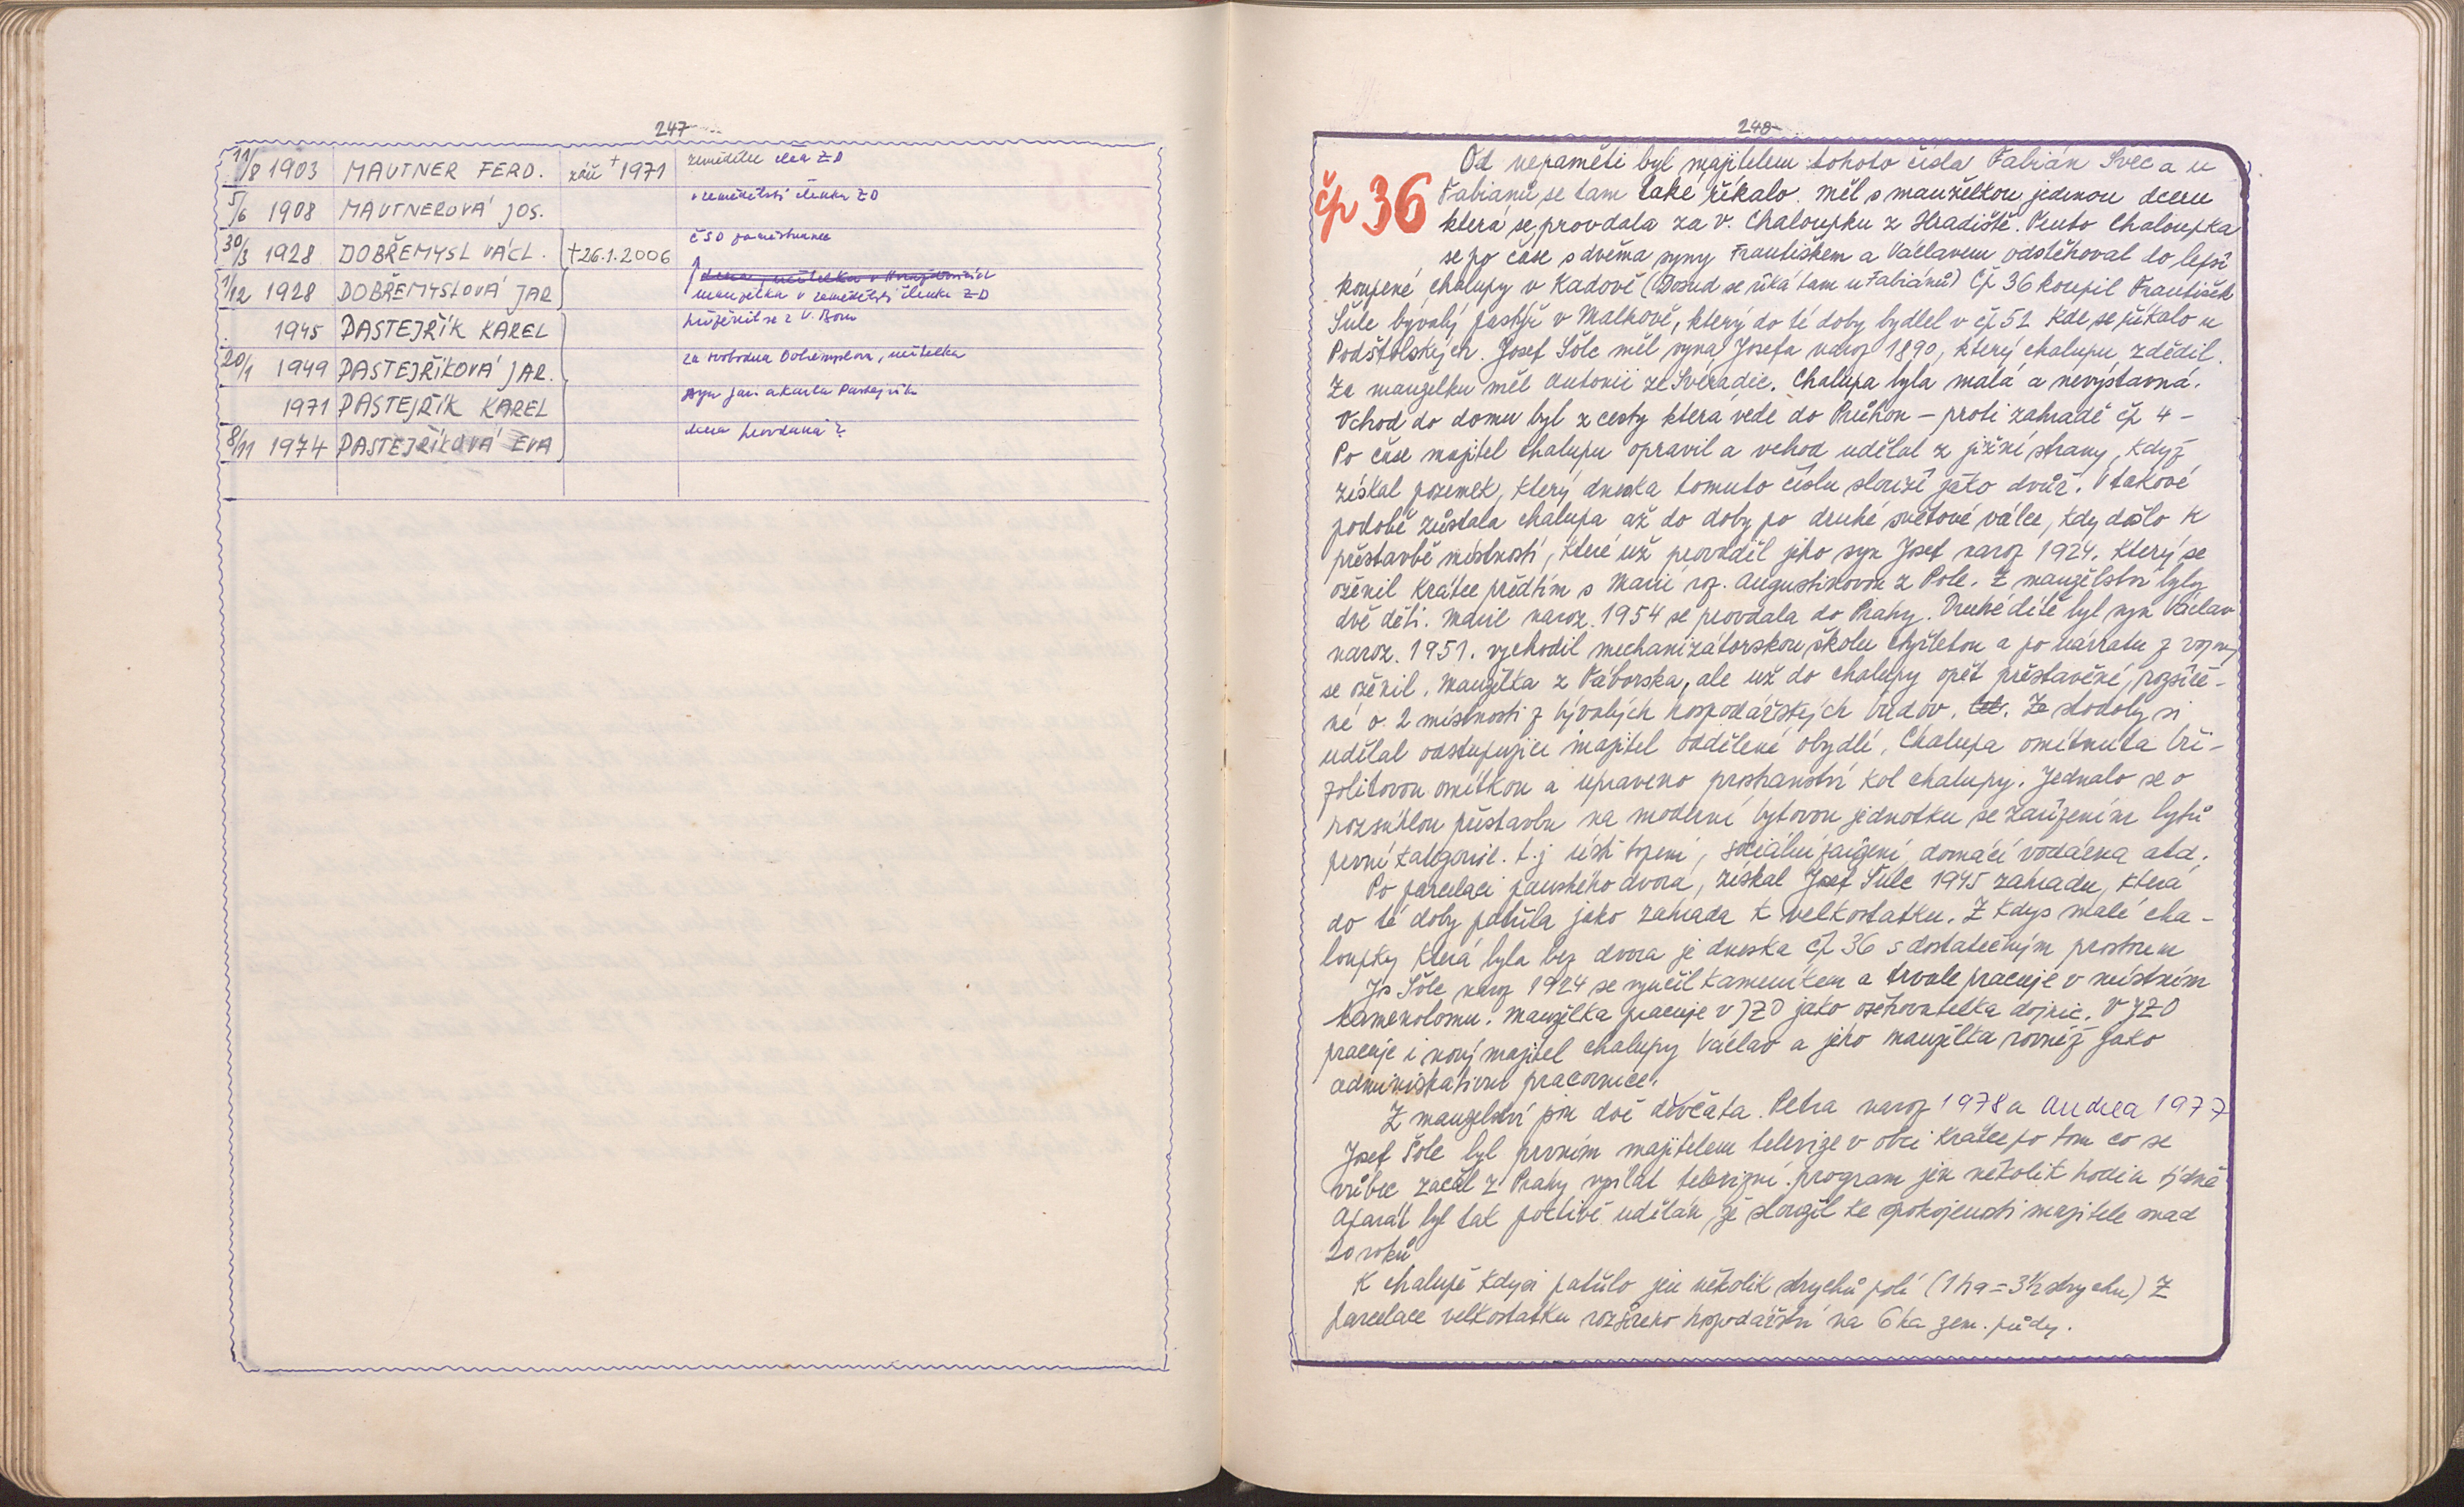 247
11/8 1903 MAUTNER FERD. září + 1971 zemědělec člen ZD
5/6 1908 MAUTNEROVÁ JOS. v zemědělství členka ZD
30/3 1928 DOBŘEMYSL VÁCL. +26.1.2006 ČSD zaměstnanec
1/12 1928 DOBŘEMYSLOVÁ JAR
manželka v zemědělství členka ZD
1945 PASTEJŘÍK KAREL přiženil se z V. Boru
20/1 1949 PASTEJŘÍKOVÁ JAR. za svobodna Dobřemyslova, učitelka
1971 PASTEJŘÍK KAREL syn Jar. a Karla Pastejřík
8/11 1974 PASTEJŘÍKOVÁ EVA dcera provdaná?
248
čp 36
Od nepaměti byl majitelem tohoto čísla Fabián Švec a u
Fabianů se tam také říkalo. Měl s manželkou jedinou dceru
která se provdala za V. Chaloupku z Hradiště. Tento Chaloupka
se po čase s dvěma syny Františkem a Václavem odstěhoval do lepší
koupené chalupy v Kadově (Dosud se říká tam u Fabiánů) Čp 36 koupil František
Šule bývalý pastýř v Malkově, který do té doby bydlel v čp 52 kde se říkalo u
Podštolských. Josef Šůlc měl syna Josefa naroz 1890, který chalupu zdědil.
Za manželku měl Antonii ze Svéradic. Chalupa byla malá a nevýstavná.
Vchod do domu byl z cesty která vede do Průhon - proti zahradě čp 4 -
Po čase majitel chalupu opravil a vchod udělal z jižní strany, když
získal pozemek, který dneska tomuto číslu slouží jako dvůr. V takové
podobě zůstala chalupa až do doby po druhé světové válce, kdy došlo k
přestavbě místností, které už prováděl jeho syn Josef naroz 1924. Který se
oženil krátce předtím s Marií roz. Augustinovou z Pole. Z manželství byly
dvě děti. Marie naroz. 1954 se provdala do Prahy. Druhé dítě byl syn Václav
naroz. 1951. vychodil mechanizátorskou školu čtyřletou a po návratu z vojny
se oženil. Manželka z Táborska, ale už do chalupy opět přestavěné, rozšíře-
né o 2 místnosti z bývalých hospodářských budov. Ze stodoly si
udělal odstupující majitel oddělené obydlí. Chalupa omítnuta bři-
zolitovou omítkou a upraveno prostranství kol chalupy. Jednalo se o
rozsáhlou přestavbu na moderní bytovou jednotku se zařízením bytů
první kategorie. t.j ústř. topení, sociální zařízení, domácí vodárna atd.
Po parcelaci panského dvora, získal Josef Šůlc 1945 zahradu, která
do té doby patřila jako zahrada k velkostatku. Z kdys malé cha-
loupky která byla bez dvora je dneska čp 36 s dostatečným prostorem
Jos Šůlc naroz 1924 se vyučil kameníkem a trvale pracuje v místním
kamenolomu. Manželka pracuje v JZD jako ošetřovatelka dojnic. V JZD
pracuje i nový majitel chalupy Václav a jeho manželka rovněž jako
administrativní pracovnice.
Z manželství jsou dvě děvčata. Petra naroz 1978 a Andrea 1977
Josef Šůlc byl prvním majitelem televize v obci krátce po tom co se
vůbec začal z Prahy vysílat televizní program jen několik hodin týdně
Aparát byl tak poctivě udělán, že sloužil ke spokojenosti majitele snad
20 roků.
K chalupě kdysi patřilo jen několik strychů polí (1 ha = 3½ strychu) Z
parcelace velkostatku rozšířeno hospodářství na 6 ha zem. půdy.